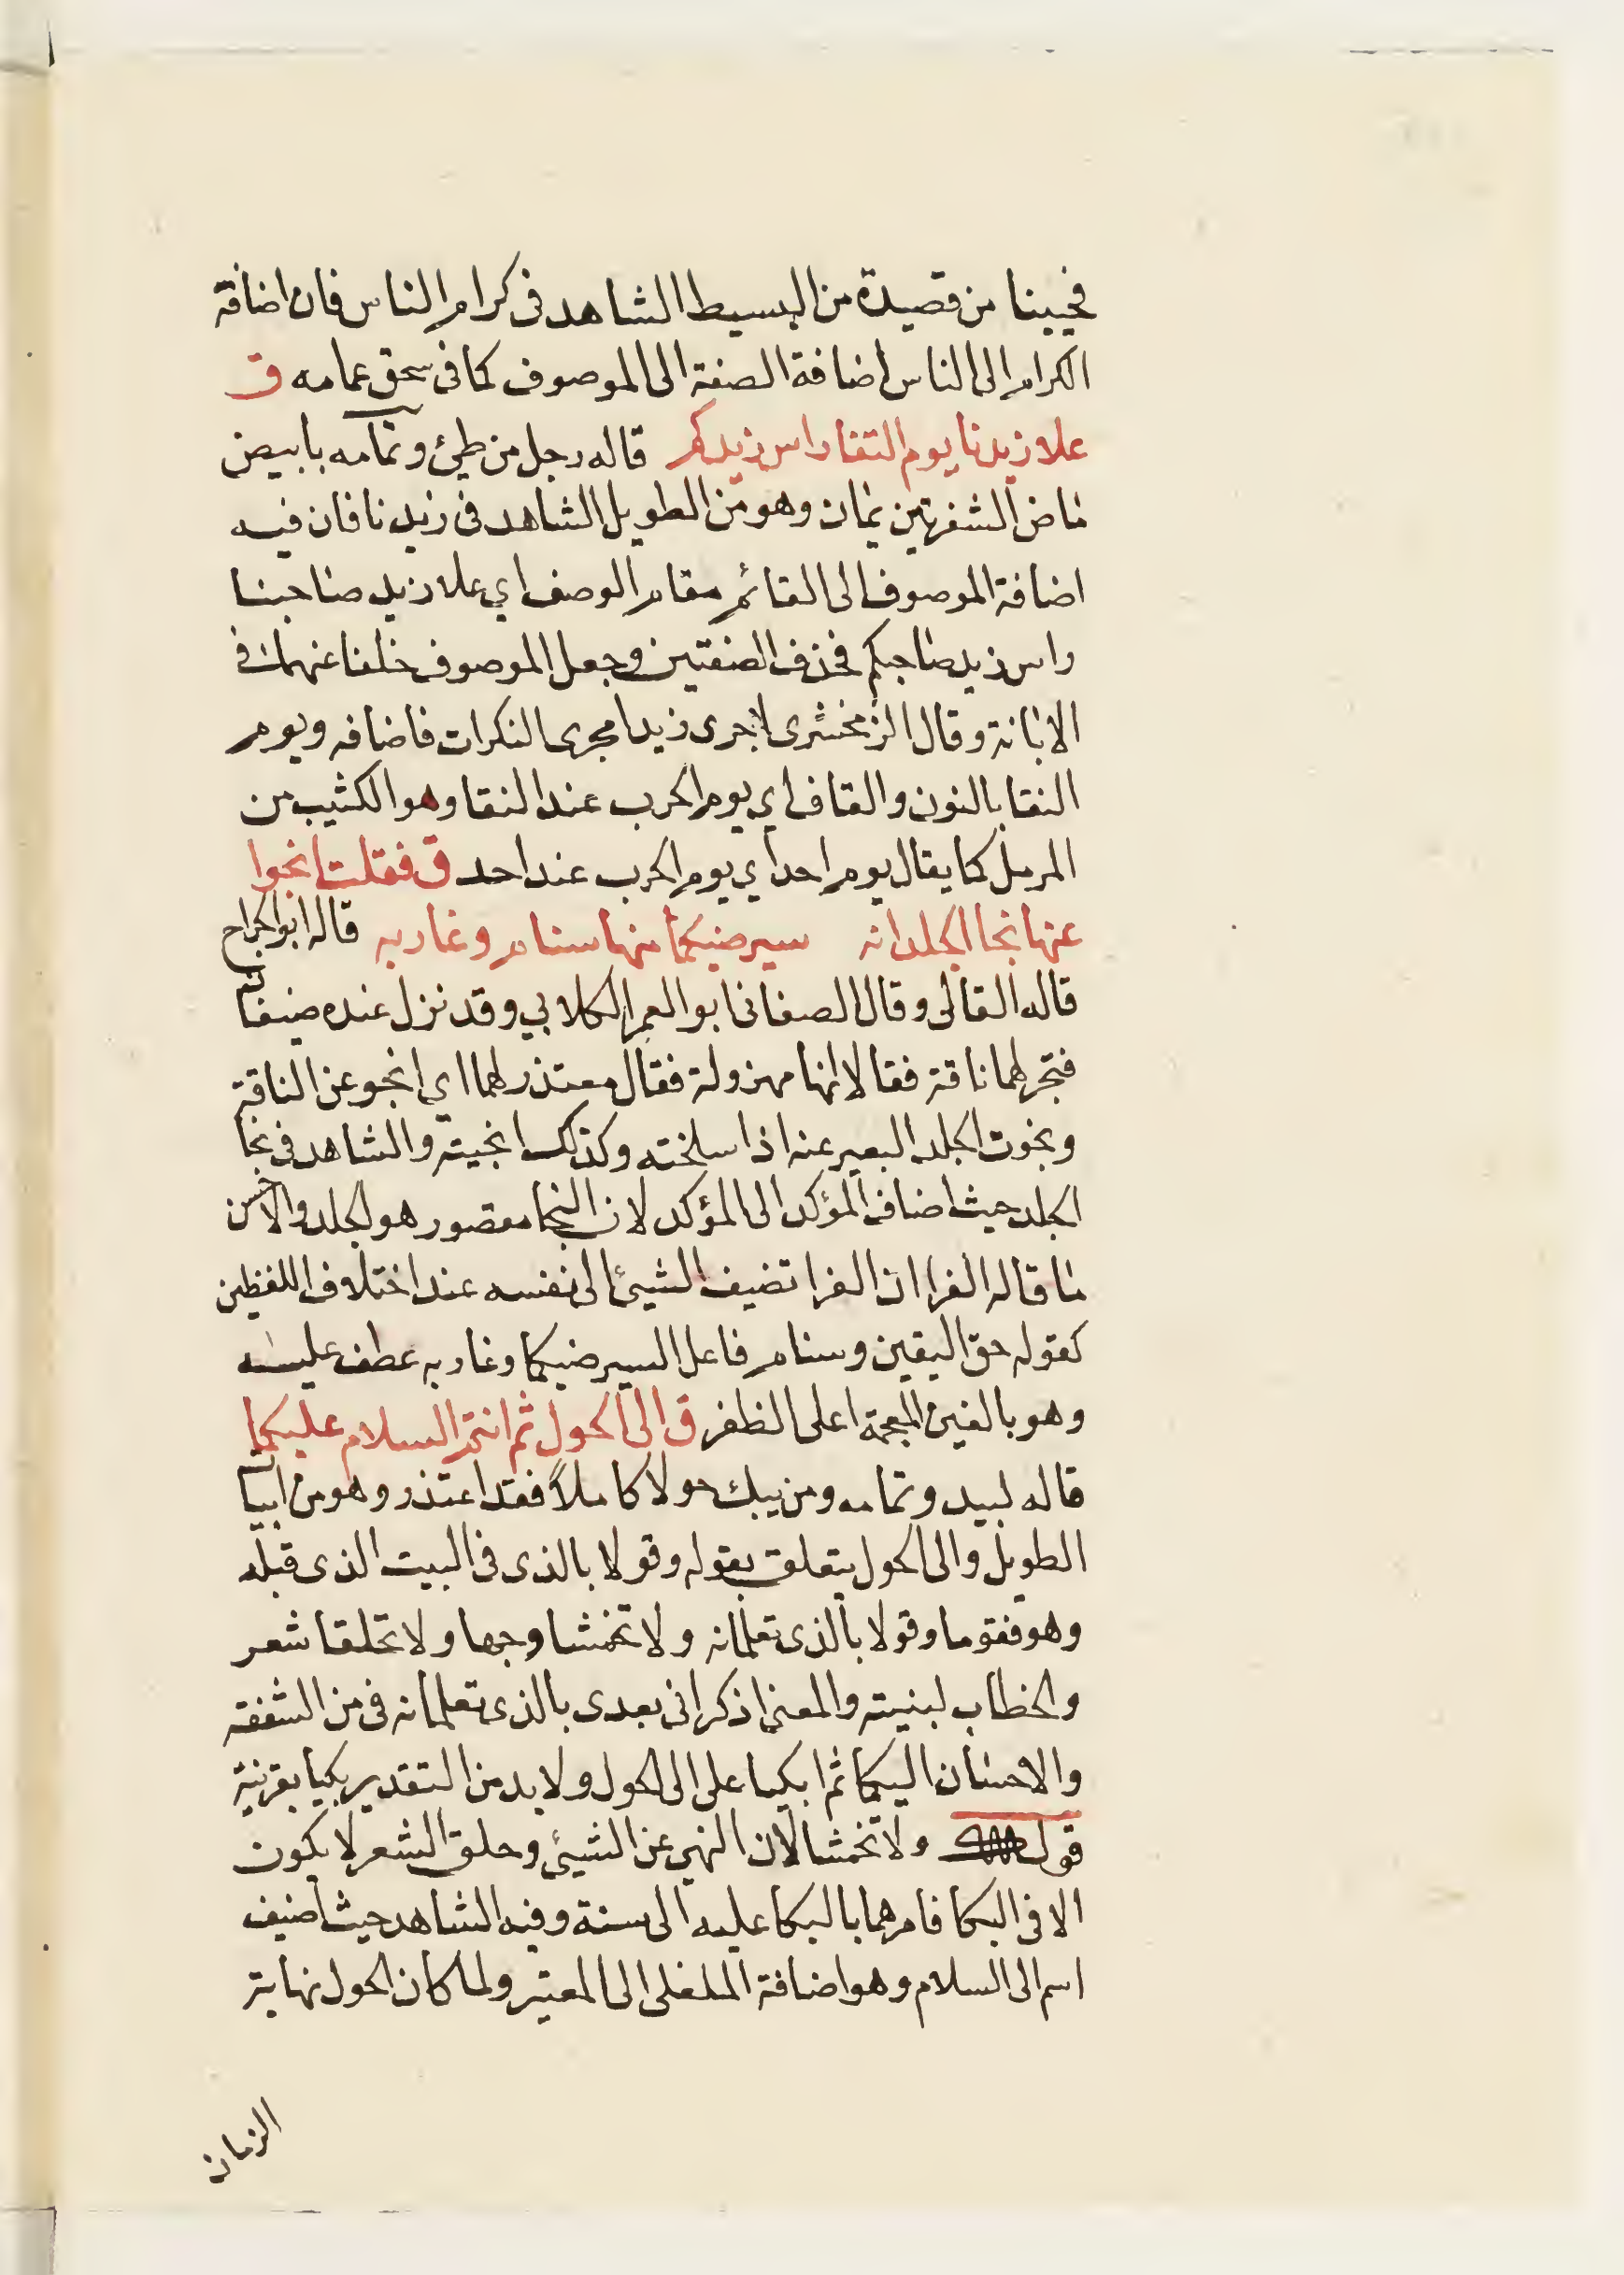 فحيينا من قصيدة من البسيط الشاهد فى كرام الناس فان اضافة
الكرام الى الناس اضافة الصفة الى الموصوف كما فى سحق عمامه ق
علا زيدنا يوم النقا راس زيدكم قاله رجل من طيئ وتمامه بابيض
ماض الشفرتين يمان وهو من الطويل الشاهد فى زيدنا فان فيه
اضافة الموصوف الى القائم مقام الوصف اي علا زيد صاحبنا
راس زيد صاحبكم فحذف الصفتين وجعل الموصوف خلفا عنهما فى
الابانة وقال الزمخشرى اجرى زيدا مجرى النكرات فاضافه ويوم
النقا بالنون والقاف اي يوم الحرب عند النقا وهو الكثيب من
الرمل كما يقال يوم احد اي يوم الحرب عند احد ق فقلت انجوا
عنها نجا الجلد انه سيرضيكما منها سنام وغاربه قاله ابو الجراح
قاله القالى وقال الصغانى ابو الغمر الكلابي وقد نزل عنده ضيفان
فنحر لهما ناقة فقالا انها مهزولة فقال معتذر لهما اي انجو عن الناقة
ونجوت الجلد البعير عنه اذا سلخته وكذلك انجيته والشاهد فى نجا
الجلد حيث اضاف المؤكد الى المؤكد لان النجا مقصور هو الجلد والاحسن
ما قاله الفرا ان الفرا تضيف الشيئ الى نفسه عند اختلاف اللفظين
كقوله حق اليقين وسنام فاعل السيرضيكما وغاربه عطف عليه
وهو بالغين المعجمة اعلى الظفر ق الى الحول ثم اسم السلام عليكما
قاله لبيد وتمامه ومن يبك حولا كاملاً فقد اعتذر وهو من ابيات
الطويل والى الحول يتعلق بقوله وقولا بالذى فى البيت الذى قبله
وهو فقوما وقولا بالذى تعلمانه ولا تخمشا وجها ولا تحلقا شعر
والخطاب لبنيته والمعنى اذكرانى بعدى بالذى تعلمانه فى من الشفقة
والاحسان اليكما ثم ابكيا على الى الحول ولا بد من التقدير بكيا بقرنية
قوله ولا تخمشا لان النهى عن الشيئ وحلق الشعر لا يكون
الا فى البكا فامرهما بالبكا عليه الى سنة وفيه الشاهد حيث اضيف
اسم الى السلام وهو اضافة الملغى الى المعتبر ولما كان الحول نهاية
الزمان